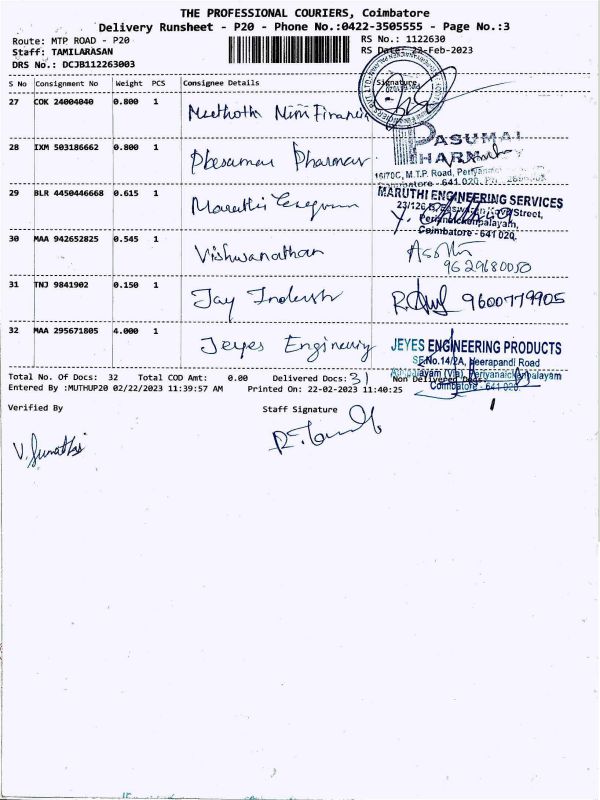 THE PROFESSIONAL COURIERS, Coimbatore
Delivery Runsheet - P20 - Phone No.:0422-3505555 - Page No.:3
Route: MTP ROAD - P20
RS No.: 1122630
Staff: TAMILARASAN
RS Date: 22-Feb-2023
DRS No.: DCJB112263003
S No Consignment No Weight PCS Consignee Details Signature
27 COK 24004040 0.800 1
28 IXM 503186662 0.800 1
PASUMAI
PHARMACY
16/70C, M.T.P. Road,
Coimbatore - 641 020.
29 BLR 4450446668 0.615 1 Maruthi
MARUTHI ENGINEERING SERVICES
Street,
Periyanaickenpalayam,
Coimbatore - 641 020.
30 MAA 942652825 0.545 1 Vishwanathan
9629680050
31 TNJ 9841902 0.150 1 Jay
9600779905
32 MAA 295671805 4.000 1 Jeyes Engineering
JEYES ENGINEERING PRODUCTS
SF.No.14/2A, Veerapandi Road
(Via), Periyanaickenpalayam
Coimbatore - 641 020.
Total No. Of Docs: 32 Total COD Amt: 0.00 Delivered Docs: 31 Non Delivered Docs: 1
Entered By :MUTHUP20 02/22/2023 11:39:57 AM Printed On: 22-02-2023 11:40:25
Verified By Staff Signature